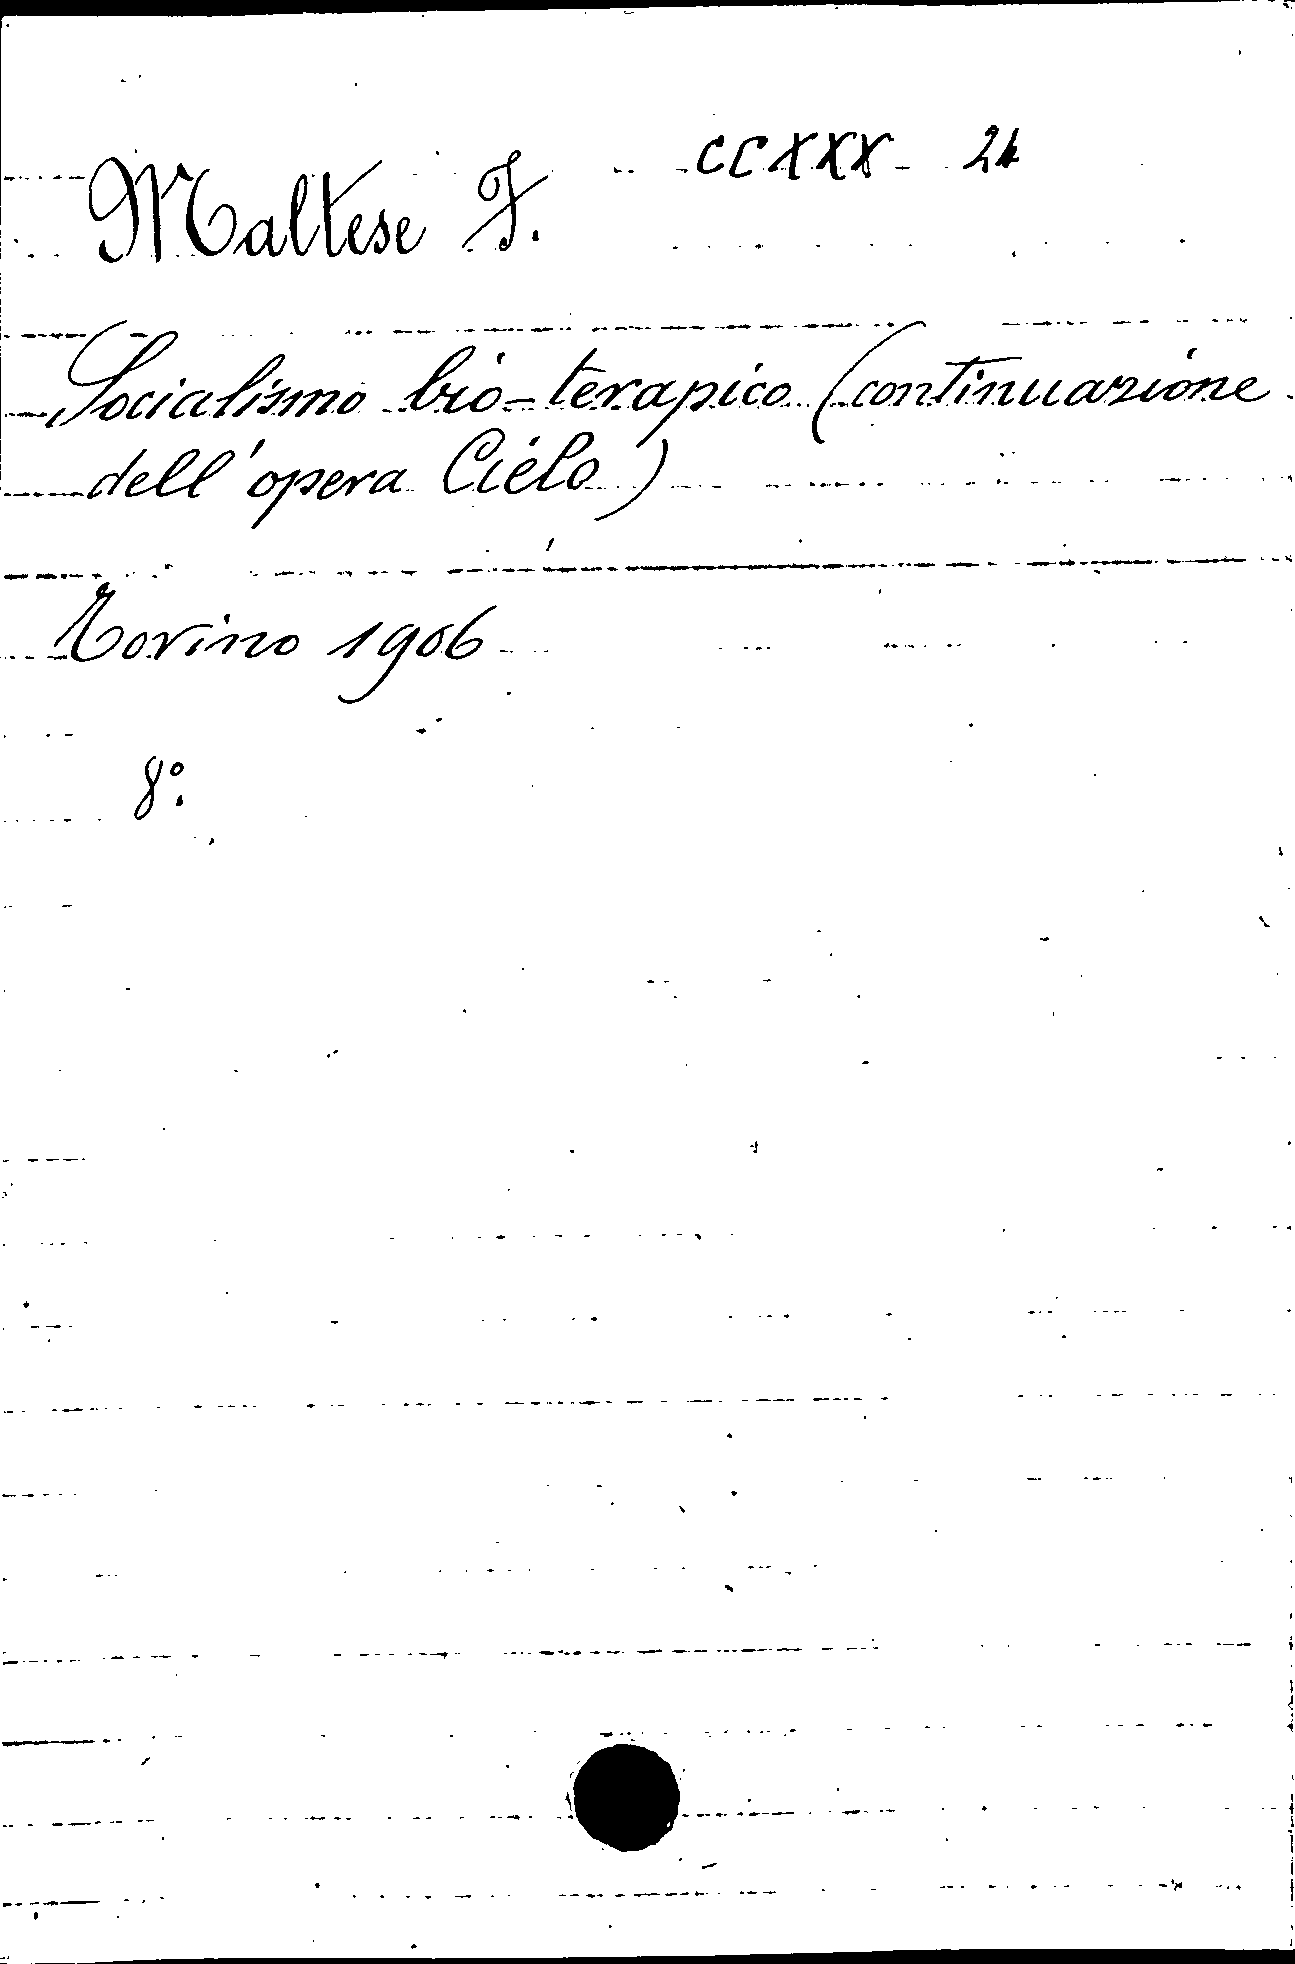 CCXXX 24
Maltese F.
Socialismo bio-terapico (continuazione
dell'opera Cielo)
Torino 1906
8°.